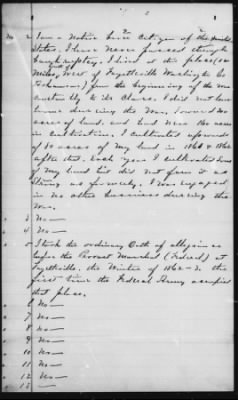 2 I am a Native born Citizen of the United
States. I have never passed through
bankruptcy. I lived at this place (10
Miles West of Fayetteville Washington Co
Arkansas) from the beginning of the war
to its close. I did not leave
home during the War. I owned
acres of land. and had over 100 acres
in cultivation. I cultivated upwards
of 60 acres of my land in 1861 & 1862
after that. Each year I cultivated some
of my land but did not farm it as
strong as formerly. I was engaged
in no other business during the
War.
3 No—
4 No—
5 I took the ordinary Oath of allegiance
before the Provost Marshal (Federal) at
Fayetteville. the Winter of 1862-3. the
first time the Federal Army occupied
that place.
6 No—
7 No—
8 No—
9 No—
10 No—
11 No—
12 No—
13 —